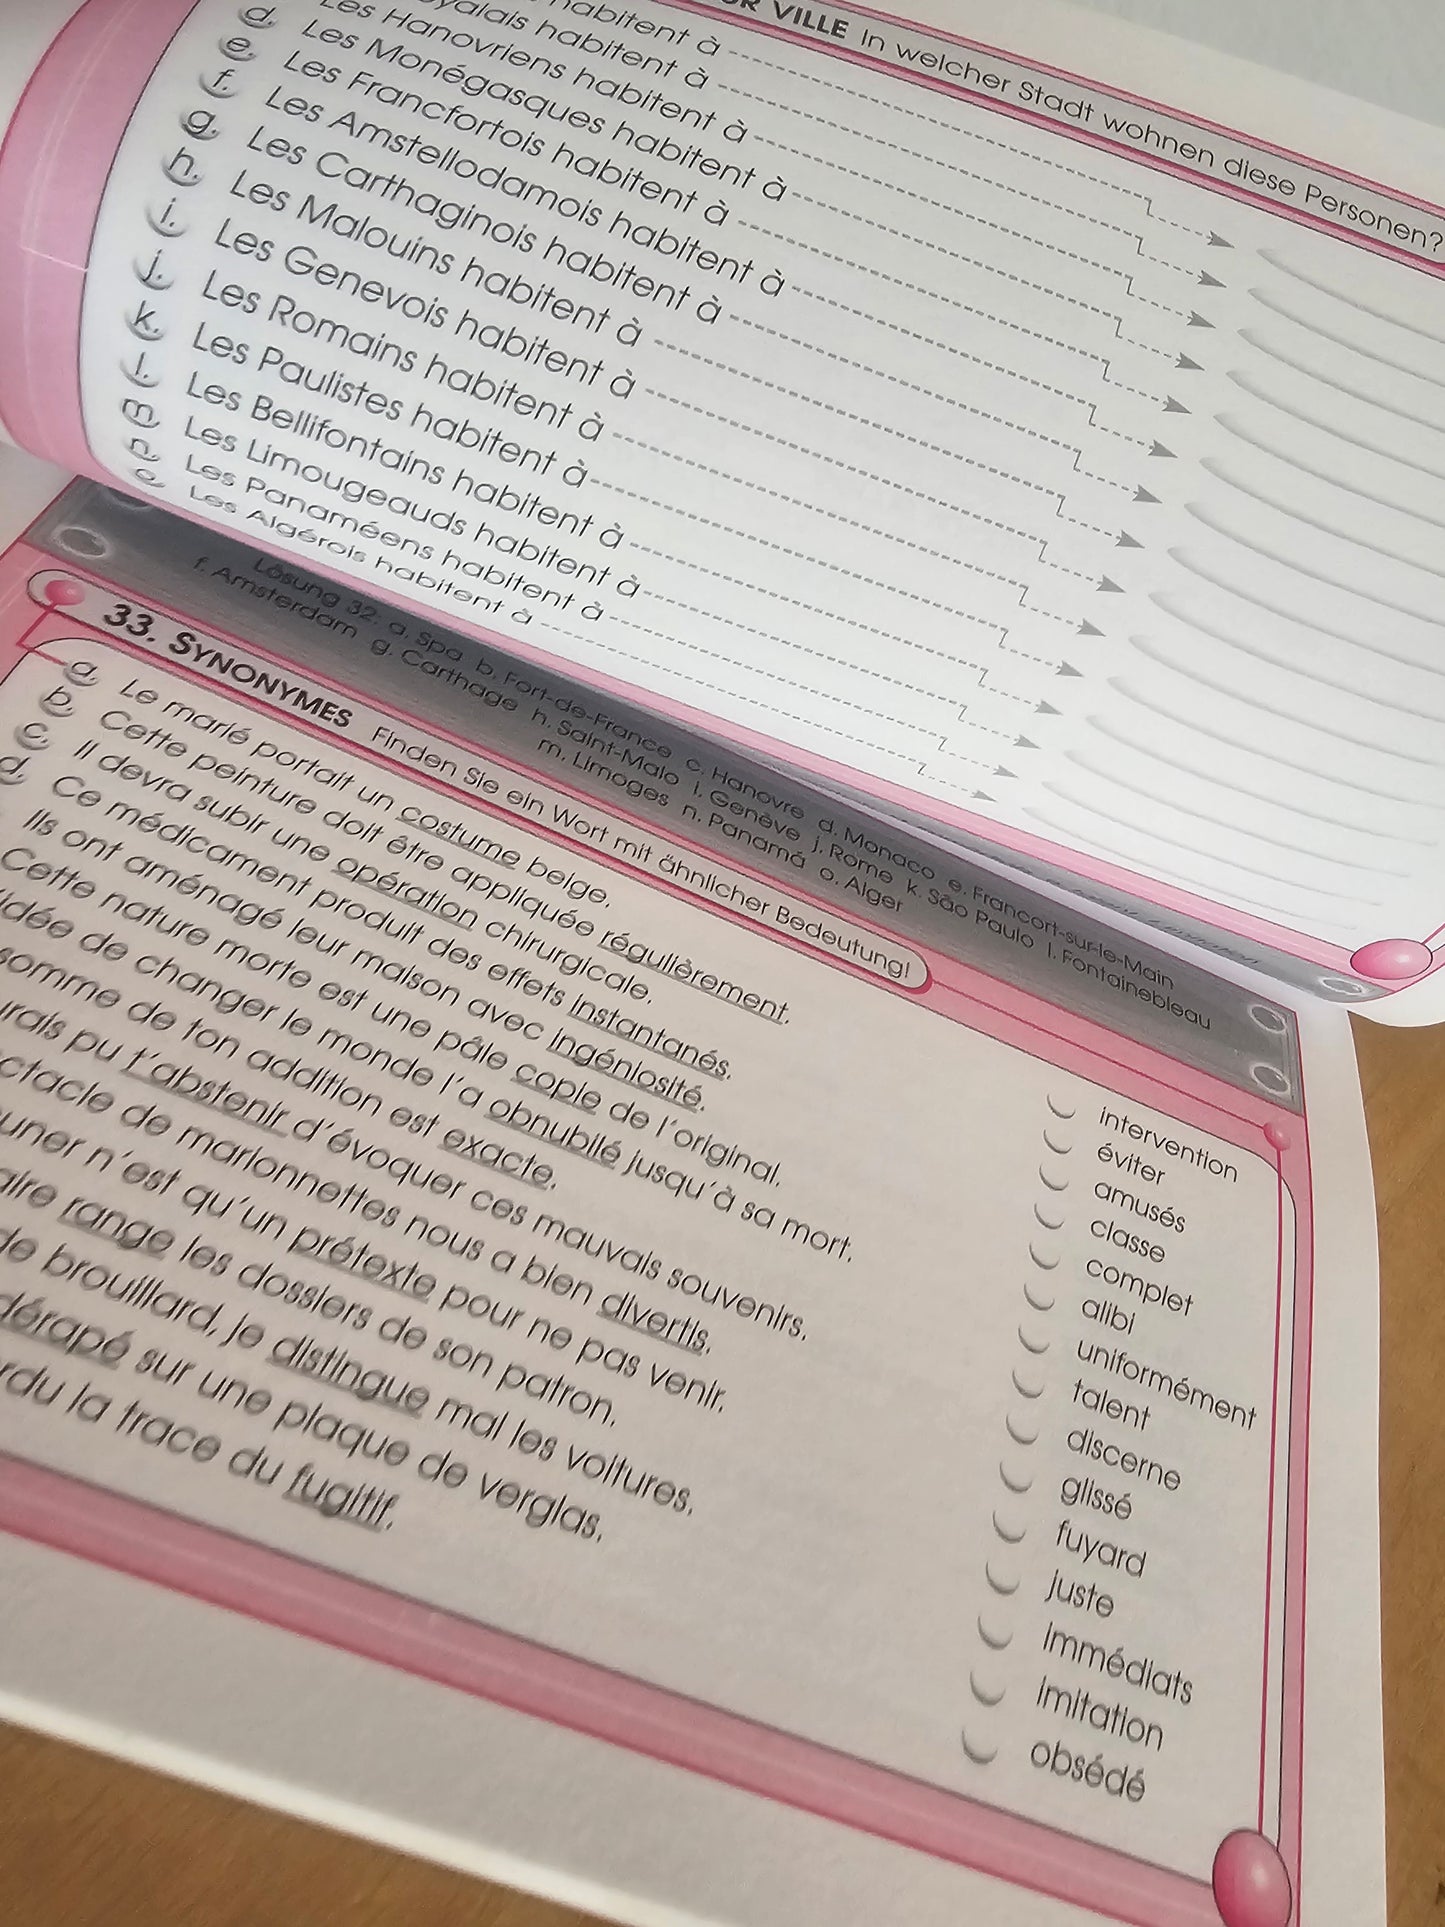 VILLE In welcher Stadt wohnen diese Personen?
habitent à
habitent à
Les Hanovriens habitent à
d. Les Monégasques habitent à
e. Les Francfortois habitent à
f. Les Amstellodamois habitent à
g. Les Carthaginois habitent à
h. Les Malouins habitent à
i. Les Genevois habitent à
j. Les Romains habitent à
k. Les Paulistes habitent à
l. Les Bellifontains habitent à
m. Les Limougeauds habitent à
n. Les Panaméens habitent à
o. Les Algérois habitent à
Lösung 32: a. Spa b. Fort-de-France c. Hanovre d. Monaco e. Francort-sur-le-Main
f. Amsterdam g. Carthage h. Saint-Malo i. Genève j. Rome k. São Paulo l. Fontainebleau
m. Limoges n. Panamá o. Alger
33. SYNONYMES Finden Sie ein Wort mit ähnlicher Bedeutung!
a. Le marié portait un costume beige.
b. Cette peinture doit être appliquée régulièrement.
c. Il devra subir une opération chirurgicale.
d. Ce médicament produit des effets instantanés.
Ils ont aménagé leur maison avec ingéniosité.
Cette nature morte est une pâle copie de l'original.
idée de changer le monde l'a obnubilé jusqu'à sa mort.
somme de ton addition est exacte.
pu t'abstenir d'évoquer ces mauvais souvenirs.
de marionnettes nous a bien divertis.
n'est qu'un prétexte pour ne pas venir.
range les dossiers de son patron.
de brouillard, je distingue mal les voitures.
dérapé sur une plaque de verglas.
la trace du fugitif.
intervention
éviter
amusés
classe
complet
alibi
uniformément
talent
discerne
glissé
fuyard
juste
immédiats
imitation
obsédé